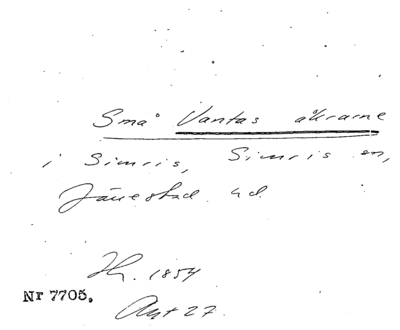 Små Vantas åkrarne
i Simris, Simris sn,
Järrestad hd.
Hy. 1854
Nr 7705.
Akt 27.